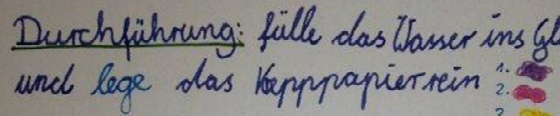 Durchführung: fülle das Wasser ins Gl
und lege das Kepppapierrein 1.
2.